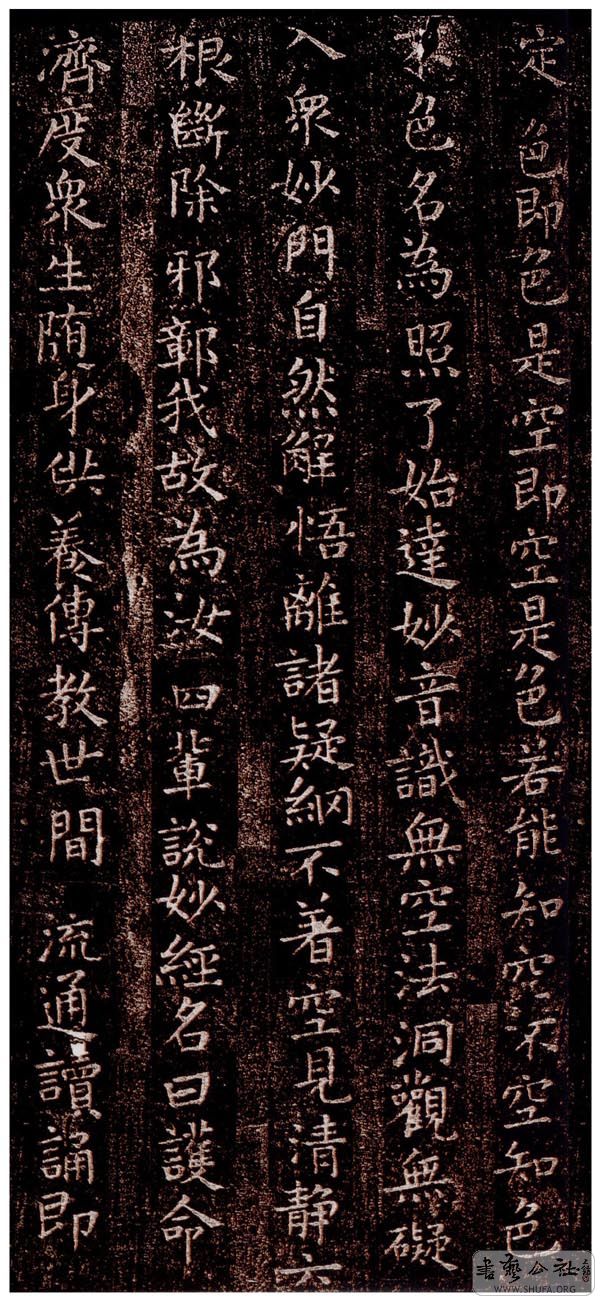 定 色即色是空即空是色若能知空不空知色
不色名為照了始達妙音識無空法洞觀無礙
入衆妙門自然解悟離諸疑網不著空見清静六
根斷除邪鄣我故為汝四輩説妙經名曰護命
濟度衆生随身供養傳教世間 流通讀誦即
書藝公社
WWW.SHUFA.ORG